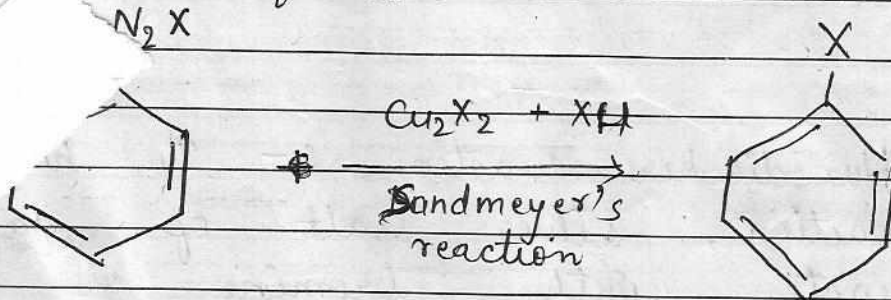 N₂X
X
Cu₂X₂ + XH
Sandmeyer's
reaction